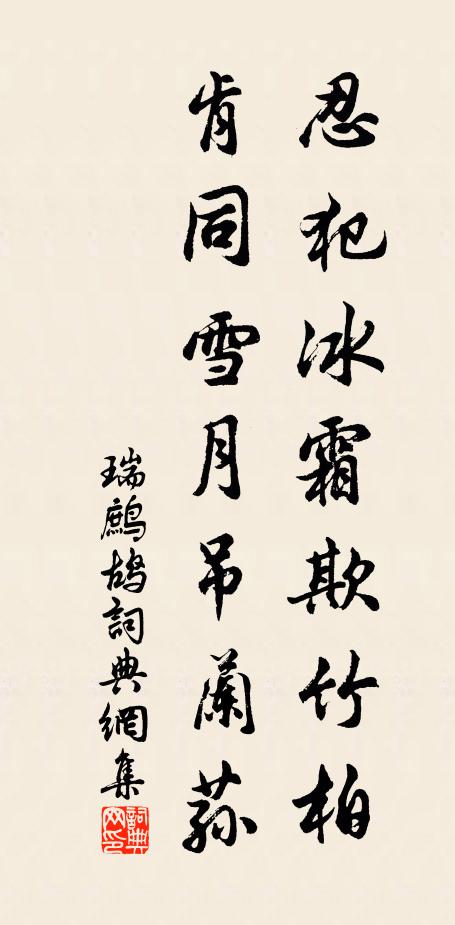 忍犯冰霜欺竹柏
肯同雪月吊蘭蓀
瑞鷓鴣詞典網集
詞典网印